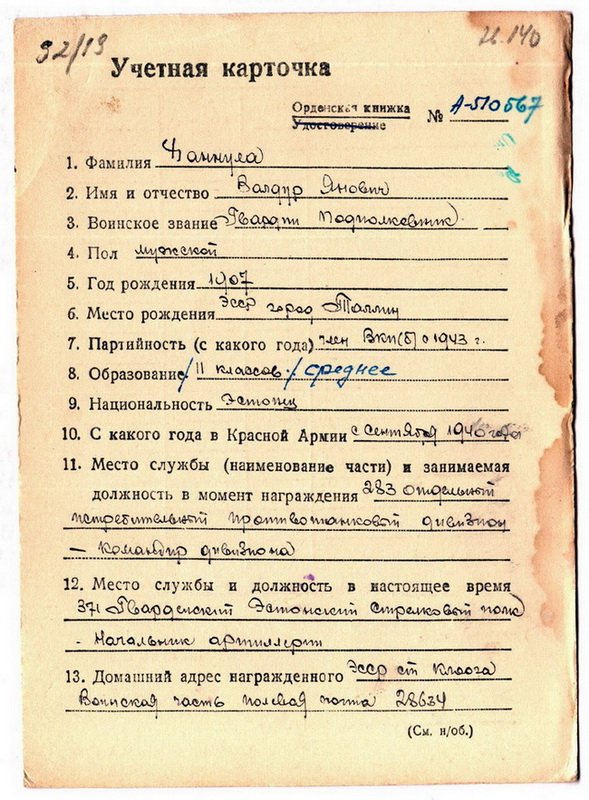 92/19
Н.140
Учетная карточка
Орденская книжка
Удостоверение
№ А-510567
1. Фамилия Ваннула
2. Имя и отчество Валдур Янович
3. Воинское звание Гвардии Подполковник
4. Пол мужской
5. Год рождения 1907
6. Место рождения ЭССР город Таллин
7. Партийность (с какого года) член ВКП(б) с 1943 г.
8. Образование / 11 классов / среднее
9. Национальность Эстонец
10. С какого года в Красной Армии с сентября 1940 года
11. Место службы (наименование части) и занимаемая
должность в момент награждения 283 отдельный
истребительный противотанковый дивизион
– командир дивизиона
12. Место службы и должность в настоящее время
371 Гвардейский Эстонский Стрелковый полк
- Начальник артиллерии
13. Домашний адрес награжденного ЭССР ст. Клоога
Воинская часть полевая почта 28634
(См. н/об.)